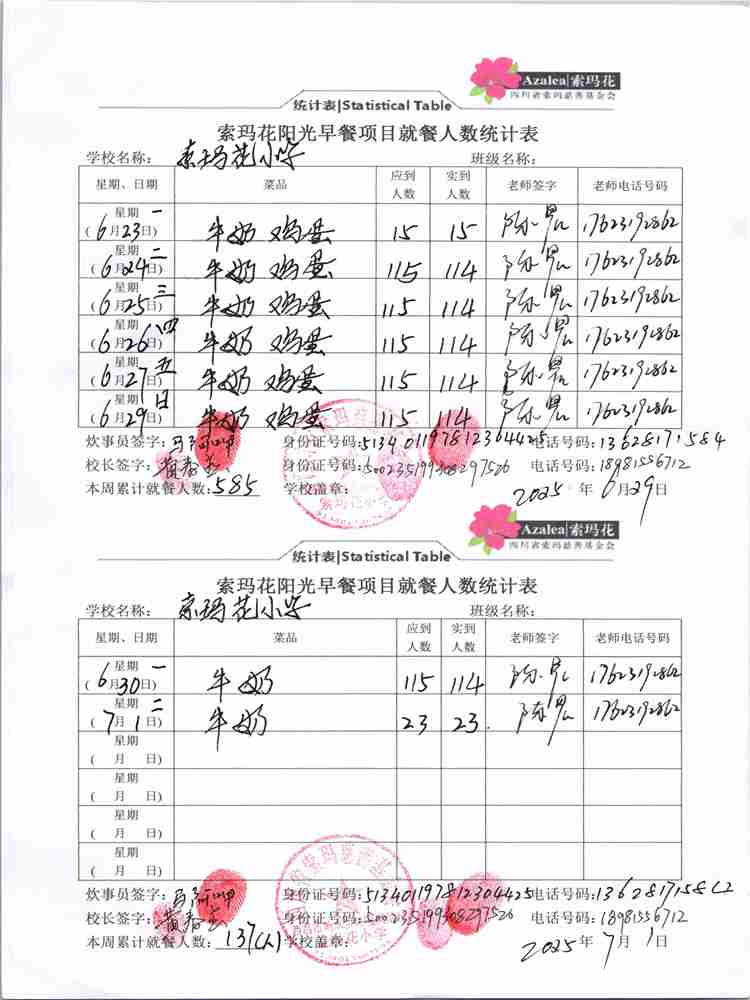 Azalea|索玛花
四川省索玛慈善基金会
统计表|Statistical Table
索玛花阳光早餐项目就餐人数统计表
学校名称： 索玛花小学 班级名称：
星期、日期 菜品 应到人数 实到人数 老师签字 老师电话号码
星期一 (6月23日) 牛奶 鸡蛋 15 15 17623192862
星期二 (6月24日) 牛奶 鸡蛋 115 114 17623192862
星期三 (6月25日) 牛奶 鸡蛋 115 114 17623192862
星期四 (6月26日) 牛奶 鸡蛋 115 114 17623192862
星期五 (6月27日) 牛奶 鸡蛋 115 114 17623192862
星期日 (6月29日) 牛奶 鸡蛋 115 114 17623192862
炊事员签字： 身份证号码： 电话号码：13628171584
校长签字： 身份证号码：500235199308297526 电话号码：18981556712
本周累计就餐人数：585 学校盖章： 2025年6月29日
Azalea|索玛花
四川省索玛慈善基金会
统计表|Statistical Table
索玛花阳光早餐项目就餐人数统计表
学校名称： 索玛花小学 班级名称：
星期、日期 菜品 应到人数 实到人数 老师签字 老师电话号码
星期一 (6月30日) 牛奶 115 114 17623192862
星期二 (7月1日) 牛奶 23 23 17623192862
星期 (月 日)
星期 (月 日)
星期 (月 日)
星期 (月 日)
炊事员签字： 身份证号码：513401197812304425 电话号码：
校长签字： 身份证号码：500235199308297526 电话号码：18981556712
本周累计就餐人数：137(人) 学校盖章： 2025年7月1日